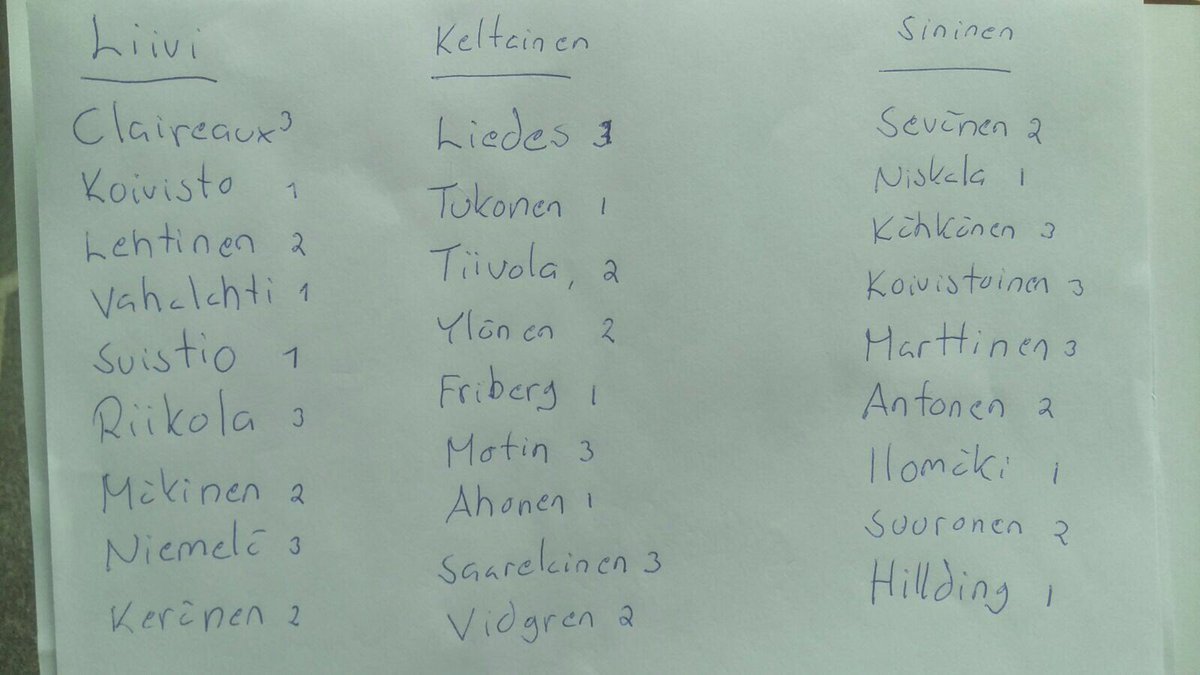 Liivi
Claireaux 3
Koivisto 1
Lehtinen 2
Vahalahti 1
Suistio 1
Riikola 3
Mäkinen 2
Niemelä 3
Keränen 2
Keltainen
Liedes 3
Tukonen 1
Tiivola, 2
Ylönen 2
Friberg 1
Motin 3
Ahonen 1
Saarekinen 3
Vidgren 2
Sininen
Sevänen 2
Niskala 1
Kähkönen 3
Koivistoinen 3
Marttinen 3
Antonen 2
Ilomäki 1
Suuronen 2
Hillding 1